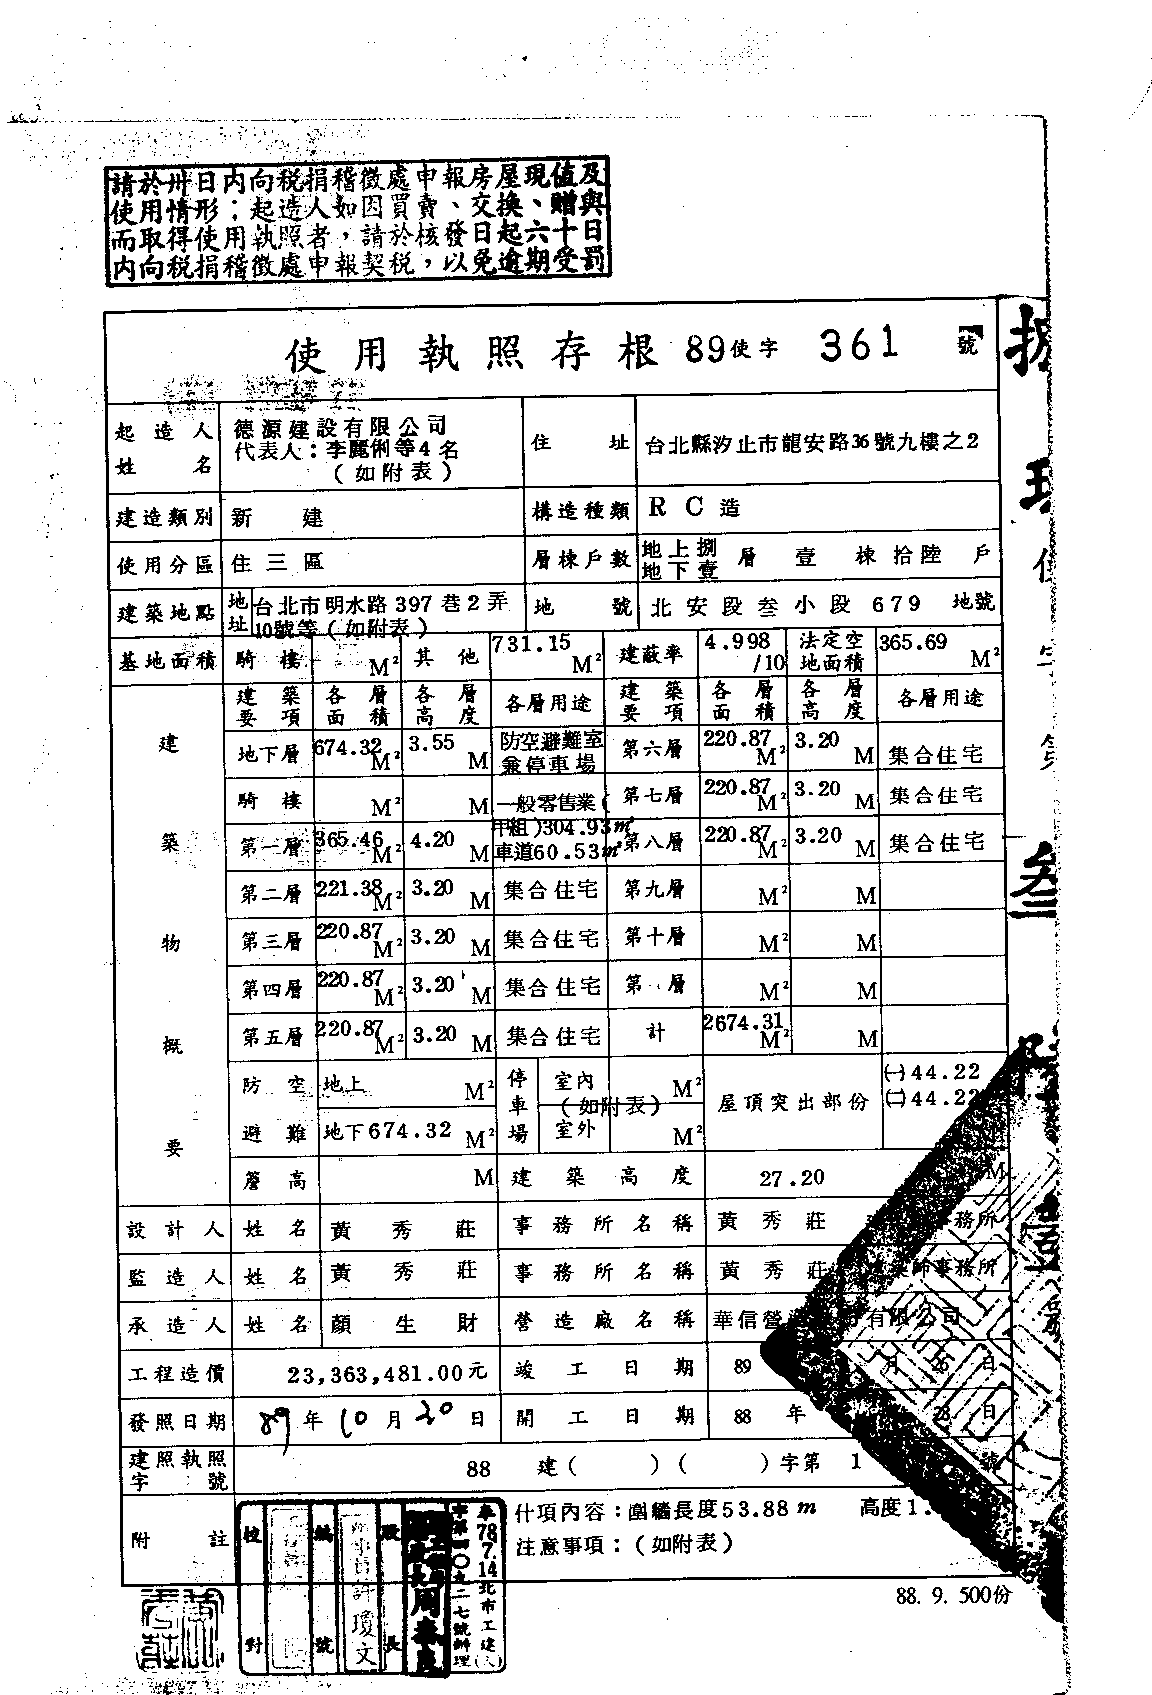 請於卅日內向稅捐稽徵處申報房屋現值及
使用情形；起造人如因買賣、交換、贈與
而取得使用執照者，請於核發日起六十日
內向稅捐稽徵處申報契稅，以免逾期受罰
使用執照存根 89使字 361 號
起造人姓名 德源建設有限公司 代表人：李麗俐等4名 (如附表) 住址 台北縣汐止市龍安路36號九樓之2
建造類別 新建 構造種類 RC造
使用分區 住三區 層棟戶數 地上捌 地下壹 層 壹 棟 拾陸 戶
建築地點 地址 台北市明水路397巷2弄10號等(如附表) 地號 北安段叁小段679 地號
基地面積 騎樓 M² 其他 731.15 M² 建蔽率 4.998/10 法定空地面積 365.69 M²
建築物概要
建築要項 各層面積 各層高度 各層用途 建築要項 各層面積 各層高度 各層用途
地下層 674.32 M² 3.55 M 防空避難室兼停車場 第六層 220.87 M² 3.20 M 集合住宅
騎樓 M² M 一般零售業(甲組)304.93m² 第七層 220.87 M² 3.20 M 集合住宅
第一層 365.46 M² 4.20 M 車道60.53m² 第八層 220.87 M² 3.20 M 集合住宅
第二層 221.38 M² 3.20 M 集合住宅 第九層 M² M
第三層 220.87 M² 3.20 M 集合住宅 第十層 M² M
第四層 220.87 M² 3.20 M 集合住宅 第 層 M² M
第五層 220.87 M² 3.20 M 集合住宅 計 2674.31 M² M
防空避難 地上 M² 停車場 室內 M² (如附表) 屋頂突出部份 (一)44.22
地下674.32 M² 室外 M² (二)44.22
簷高 M 建築高度 27.20 M
設計人 姓名 黃秀莊 事務所名稱 黃秀莊 事務所
監造人 姓名 黃秀莊 事務所名稱 黃秀莊建築師事務所
承造人 姓名 顏生財 營造廠名稱 華信營 有限公司
工程造價 23,363,481.00元 竣工日期 89 月 26 日
發照日期 89年10月20日 開工日期 88 年 28 日
建照執照字號 88 建( )( )字第 1 號
附註 什項內容：圍牆長度53.88m 高度1.
注意事項：(如附表)
校對 編號 股長
78.7.14北市工建
88.9.500份